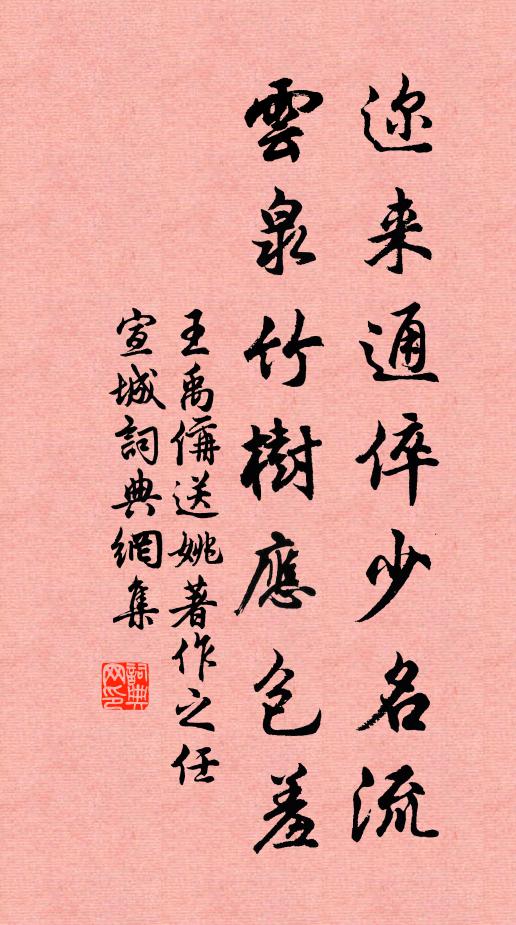 迩来通倅少名流
雲泉竹樹應包羞
王禹偁送姚著作之任
宣城詞典網集
詞典网印